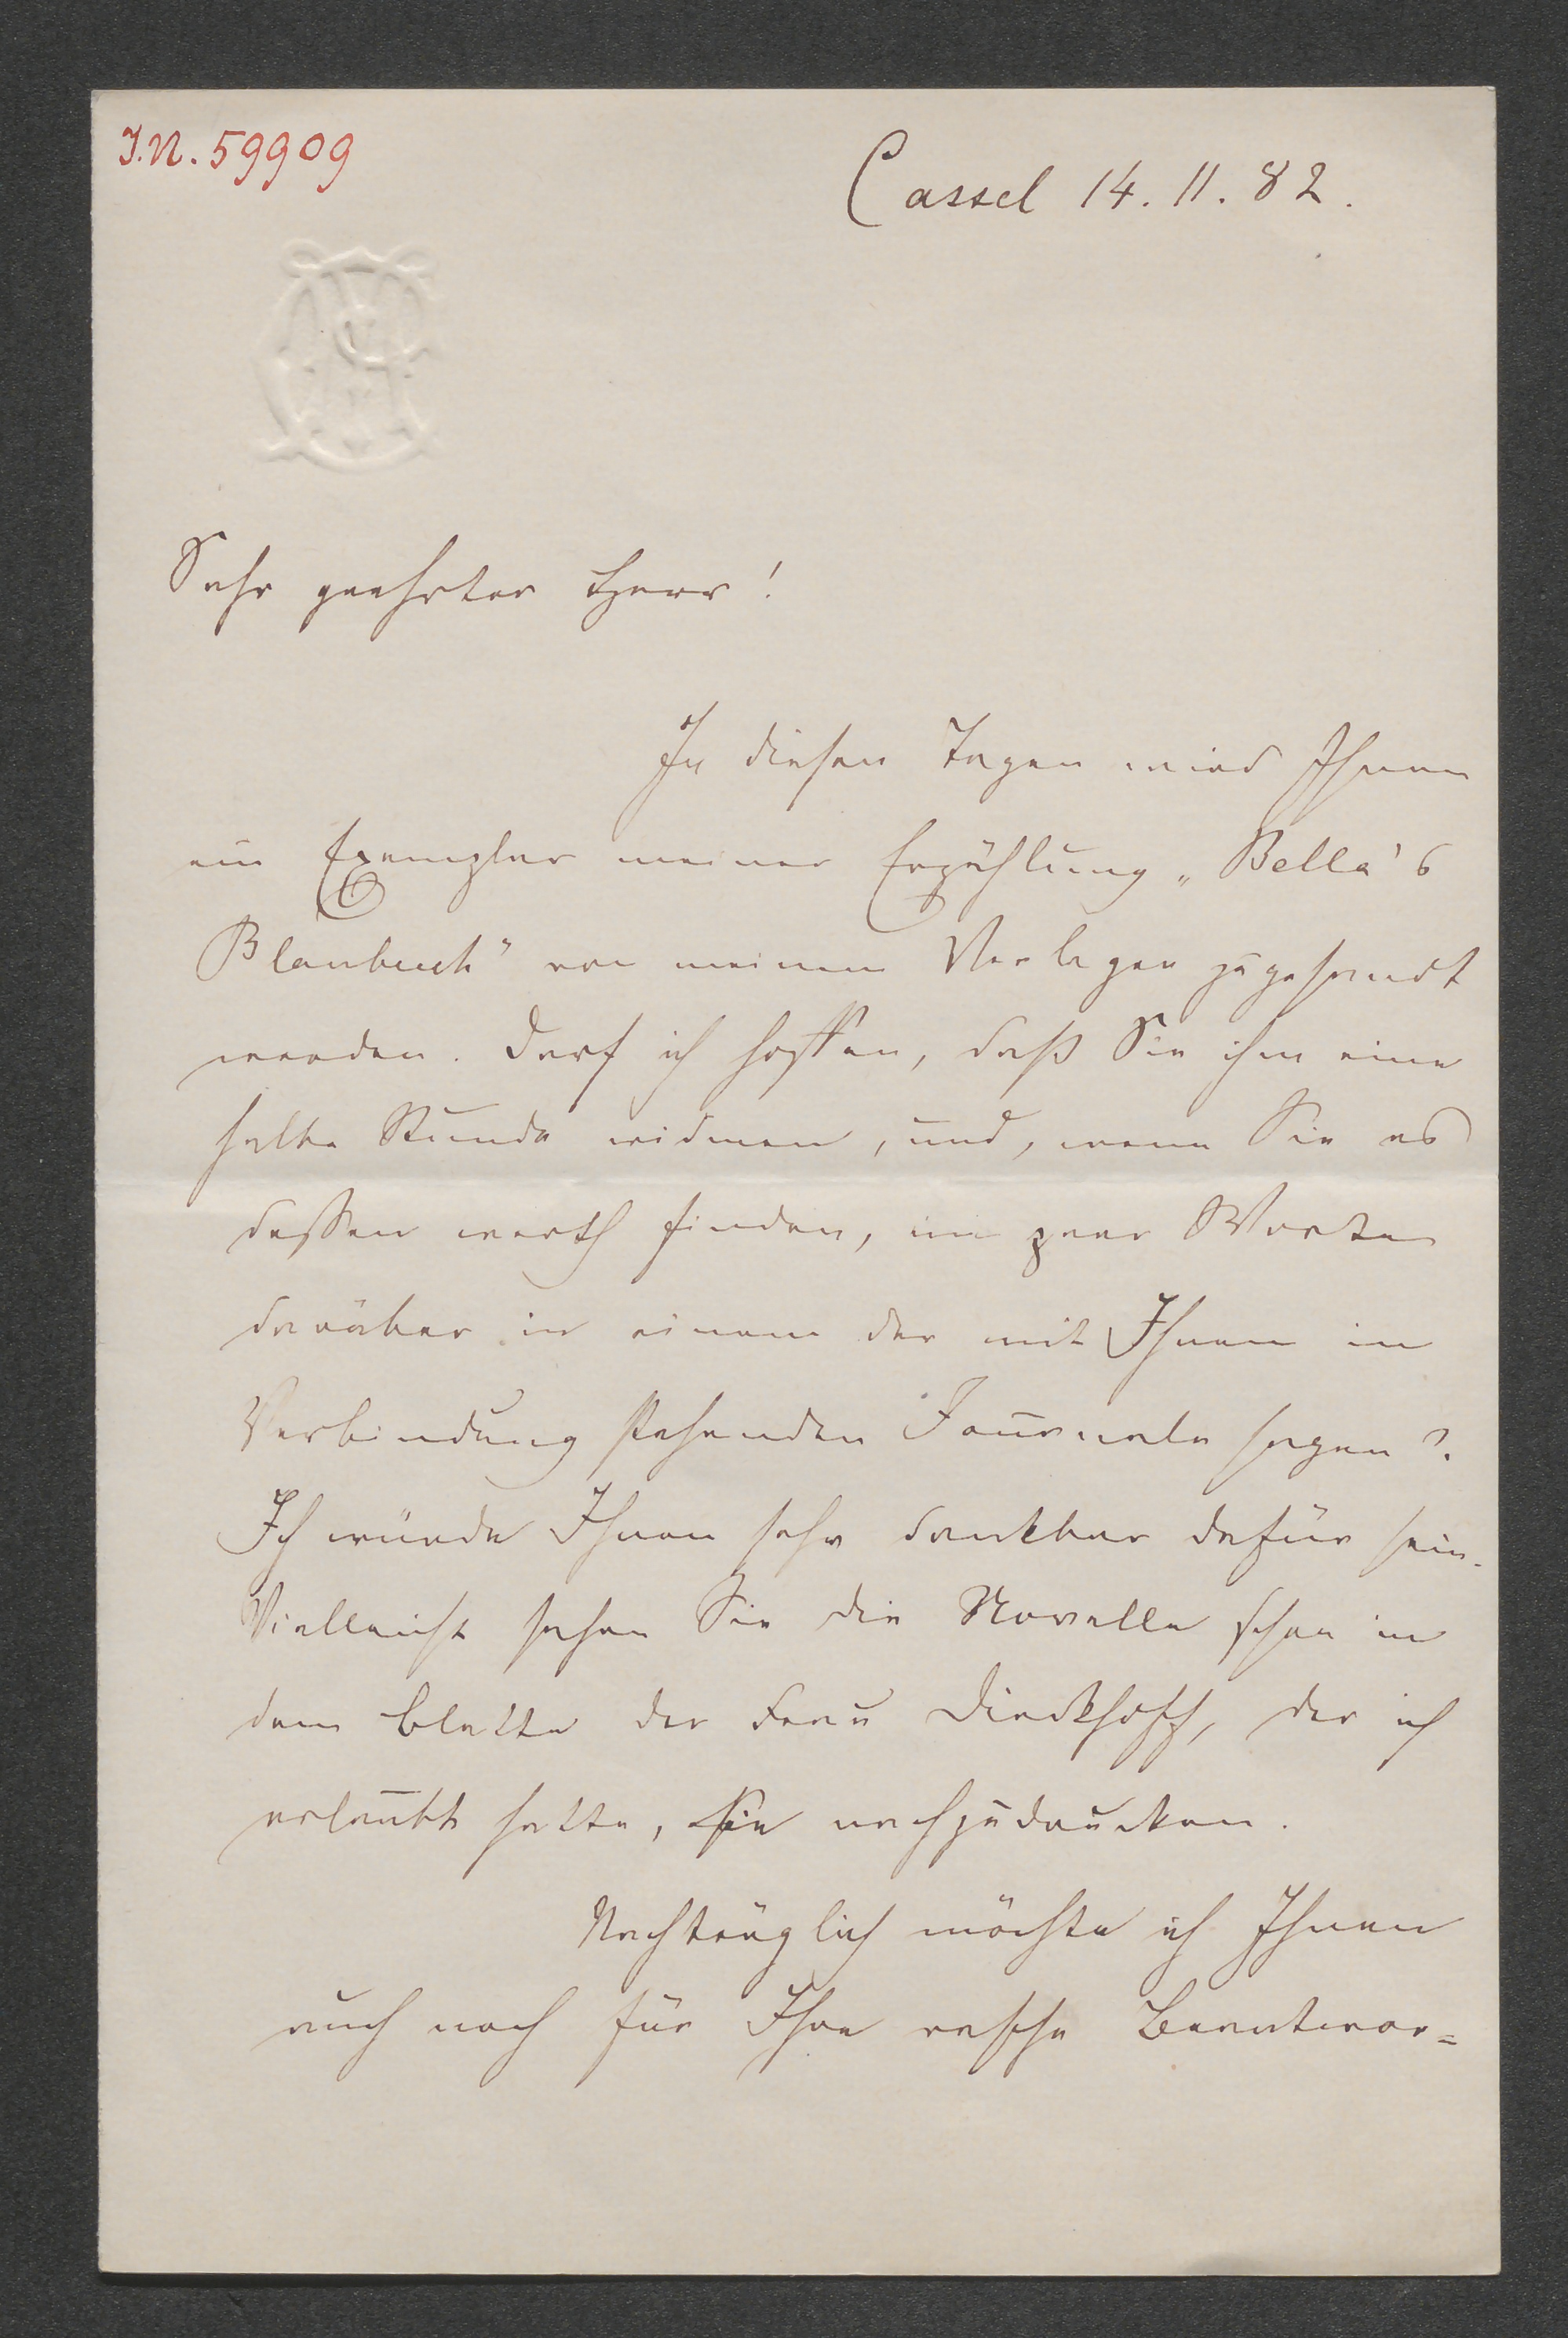 I.N. 59909
Cassel 14. 11. 82.
Sehr geehrter Herr!
In diesen Tagen wird Ihnen
ein Exemplar meiner Erzählung „Bella's
Blaubuch" von meinem Verleger zugesandt
werden. Darf ich hoffen, daß Sie ihm eine
halbe Stunde widmen, und, wenn Sie es
dessen werth finden, ein paar Worte
darüber in einem der mit Ihnen in
Verbindung stehenden Journale sagen?
Ich würde Ihnen sehr dankbar dafür sein.
Vielleicht sahen Sie die Novelle schon in
dem Blatte der Frau Dinckhoff, der ich
erlaubt hatte, sie nachzudrucken.
Nachträglich möchte ich Ihnen
auch noch für Ihre rasche Beantwor=